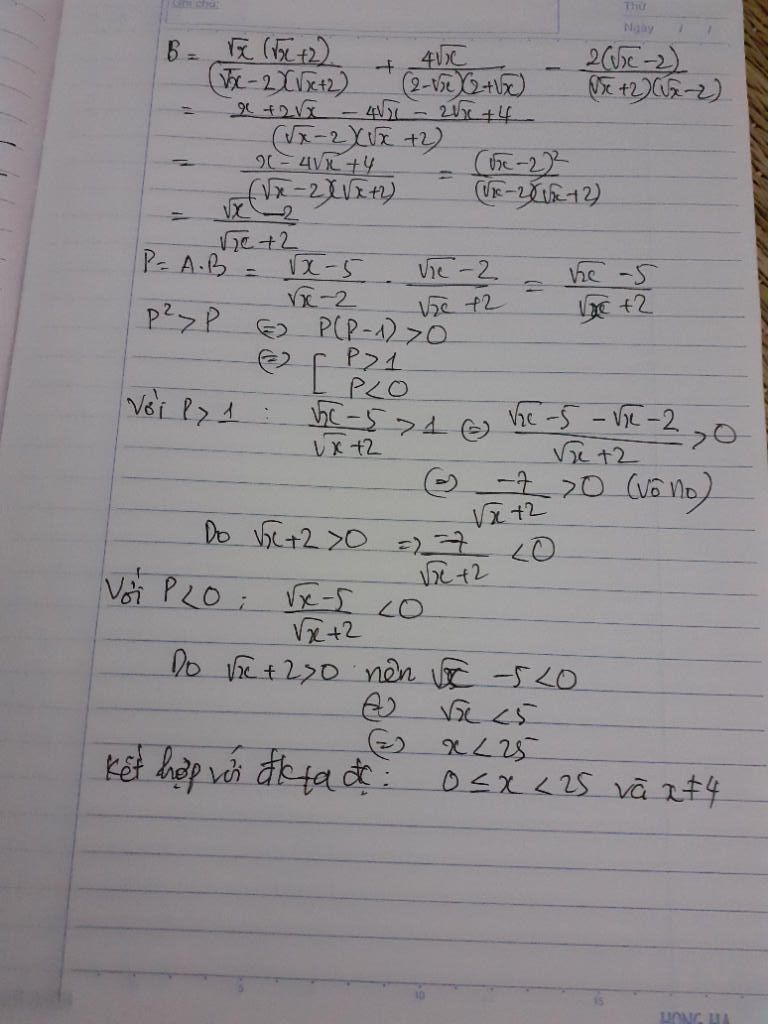 Ghi chú:
Thứ
Ngày / /
B = √x(√x+2)/((√x-2)(√x+2)) + 4√x/((2-√x)(2+√x)) - 2(√x-2)/((√x+2)(√x-2))
= (x+2√x - 4√x - 2√x+4)/((√x-2)(√x+2))
= (x-4√x+4)/((√x-2)(√x+2)) = (√x-2)²/((√x-2)(√x+2))
= (√x-2)/(√x+2)
P = A.B = (√x-5)/(√x-2) . (√x-2)/(√x+2) = (√x-5)/(√x+2)
P² > P ⇔ P(P-1) > 0
⇔ [ P > 1
P < 0
Với P > 1 : (√x-5)/(√x+2) > 1 ⇔ (√x-5-√x-2)/(√x+2) > 0
⇔ -7/(√x+2) > 0 (vô no)
Do √x+2 > 0 => -7/(√x+2) < 0
Với P < 0 : (√x-5)/(√x+2) < 0
Do √x+2 > 0 nên √x -5 < 0
⇔ √x < 5
⇔ x < 25
Kết hợp với đk ta đc: 0 ≤ x < 25 và x ≠ 4
5 10 15
HONG HA